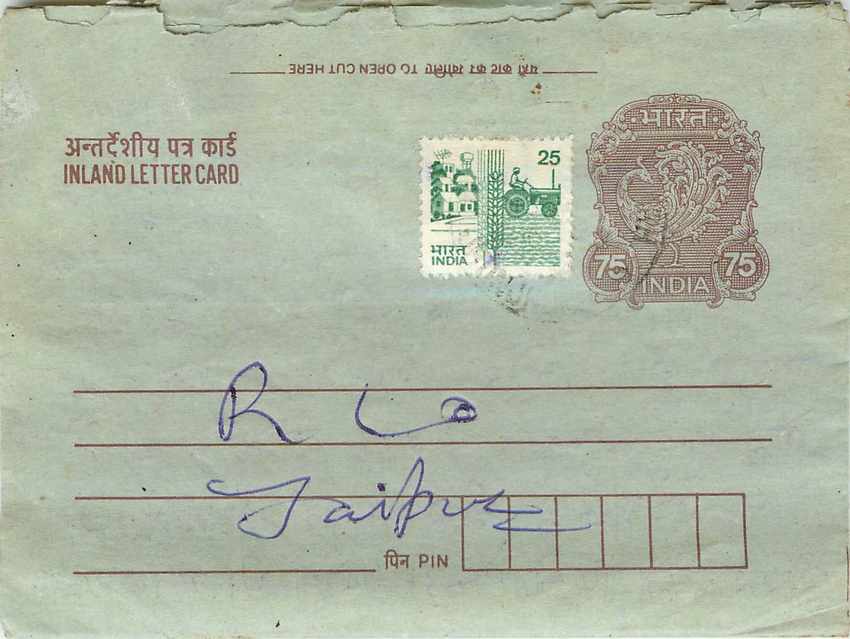 यहाँ काट कर खोलिए TO OPEN CUT HERE
अन्तर्देशीय पत्र कार्ड
INLAND LETTER CARD
25
भारत
INDIA
भारत
75 75
INDIA
Jaipur
पिन PIN